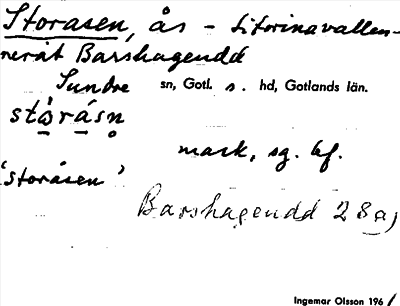 Storasen, ås - Litorinavallen
neråt Barshageudd
Sundre sn, Gotl. s. hd, Gotlands län.
stårásn
mark, sg. bf.
'storåsen'
Barshageudd 28a)
Ingemar Olsson 1961